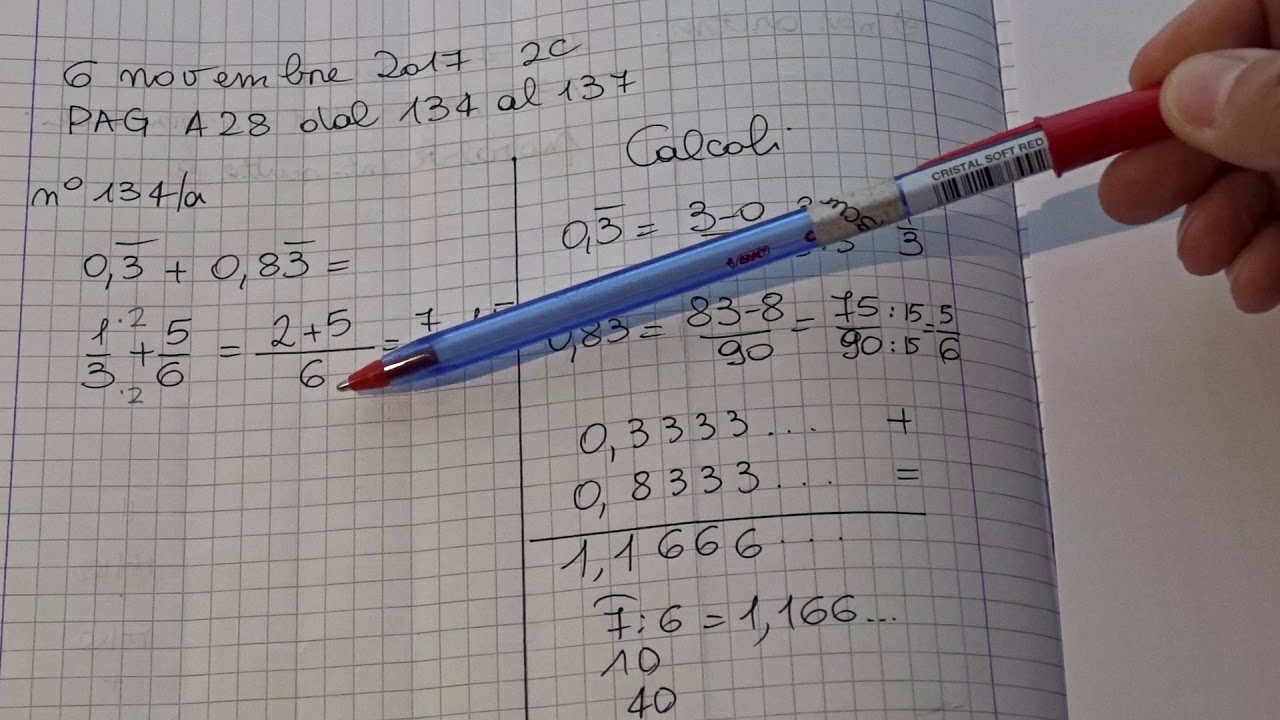 6 novembre 2017 2C
PAG A28 dal 134 al 137
n° 134/a
0,3̅ + 0,83̅ =
1/3 ·2 ·2 + 5/6 = 2+5/6 = 7
Calcoli
0,3̅ = 3-0 1/3
0,83 = 83-8/90 = 75:15/90:15 = 5/6
0,3333... +
0,8333... =
1,1666...
7:6 = 1,166...
10
40
CRISTAL SOFT RED